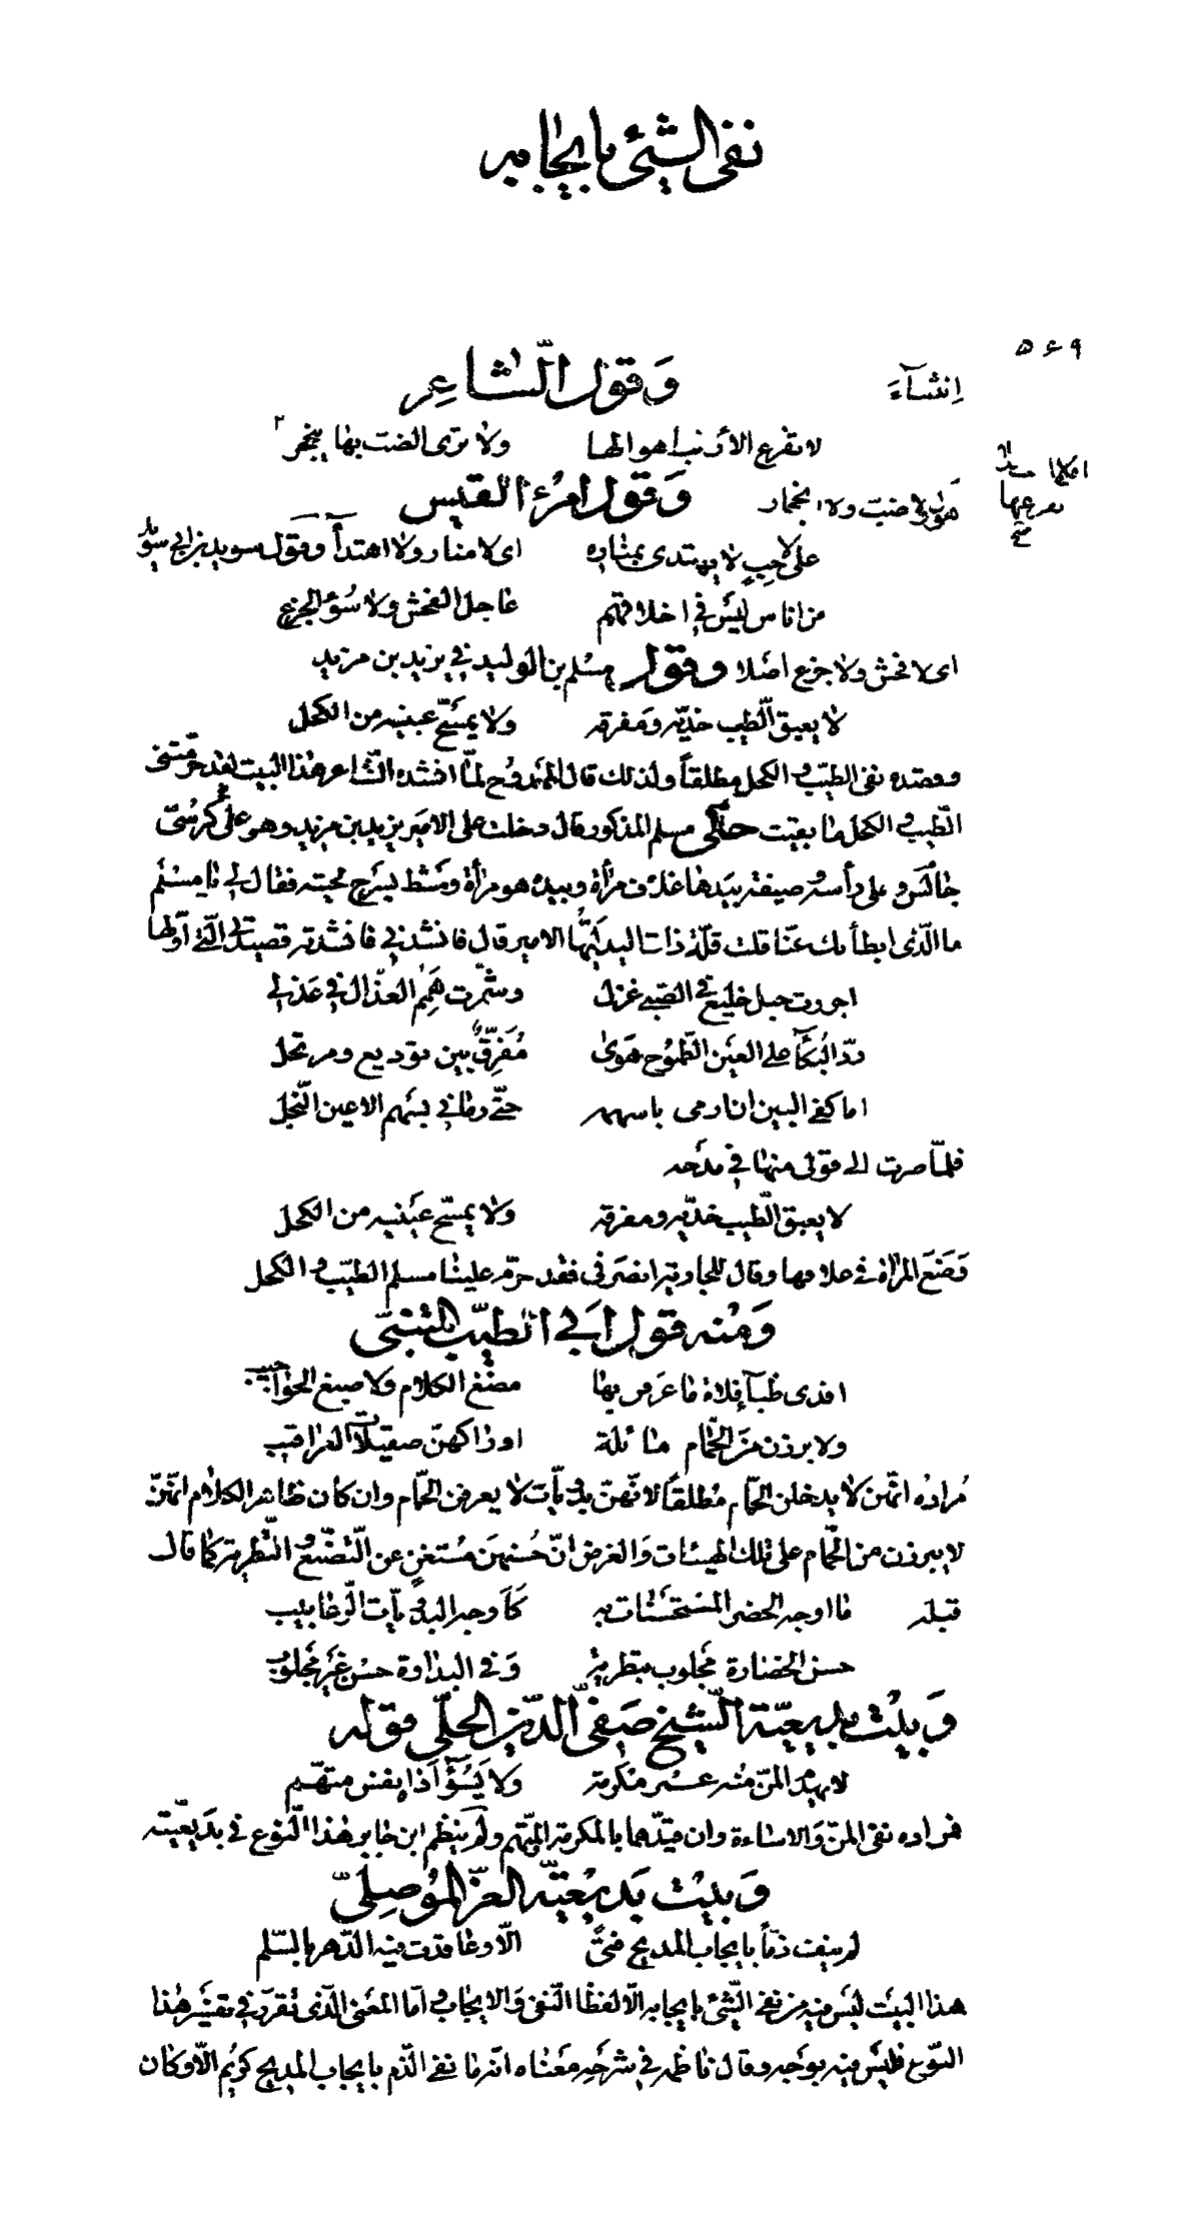 نفى الشيئ بايجابه
٥٤٩
إنشآءَ
وَقول الشّاعِر
لا تفزع الأرنب اهوالها ولا ترى الضب بها ينجحر
وَقول امرُءِ القيس
هول ولا ضب ولا انجحار
على لاحِبٍ لا يهتدى بمناره اى لا منار ولا اهتدأ وقول سويد بن ابى
من اناس ليس في اخلاقهم عاجل الفحش ولا سُوءُ الجزع
اى لا فحش ولا جزع اصلا وقول مسلم بن الوليد في يزيد بن مزيد
لا يعبق الطّيب خدّيه ومَفرقه ولا يمسّح عينيه من الكحل
وقصده نفى الطيب والكحل مطلقاً ولذلك قال الممدوح لمّا انشده الشاعر هذا البيت لقد حرمتنى
الطّيب والكحل ما بقيت حكى مسلم المذكور قال دخلت على الامير يزيد بن مزيد وهو على كرسىّ
جالس وعلى رأسه وصيفة بيدها غلاف مرأة وبيده هو مرأة ومشط يسرح لحيته فقال لي يا مسلم
ما الّذى ابطأ بك عنّا قلت قلّة ذات اليد ايّها الامير قال فانشدني فانشدته قصيدتى الّتى اوّلها
اجررت حبل خليع في الصّبى غزل وشمّرت هِمَمُ العُذّال في عَذلي
ردّ البُكآءُ على العَين الطّموُح هَوىً مُفَرّقٌ بين توديع ومرتحل
اما كفى البين ان ارمى باسهمه حتّى رمانى بسَهم الاعين النّجل
فلمّا صرت الى قولى منها في مَدحه
لا يعبق الطّيب خدّيه ومفرقه ولا يمسّح عَينيه من الكحل
وَضَعَ المرأة في غلافها وقال للجارية انصَرفى فقد حرّم علينا مسلم الطيّب والكحل
وَمنه قول ابى الطيّب المتنبّى
افدى ظبآءَ فلاة ما عرفن بها مضغ الكلام ولا صبغ الحواجيب
ولا برزن من الحمّام مائلة اوراكهنّ صقيلات العراقيب
مُرادُه انّهنّ لا يدخلن الحمّام مُطلقاً لانّهنّ بدويّات لا يعرفن الحمّام وان كان ظاهر الكلام انّهنّ
لا يبرزن من الحمّام على تلك الهيئات وَالغرض انّ حُسنهنّ مُستغنٍ عن التصنّع والتّطرية كما قال
قبله ما اوجه الحضر المستحسنات به كاَوجه البدويّات الرّعابيب
حسن الحضارة مجلوب بتطرية وَفى البداوة حسن غير مجلوب
وَبيت بديعيّة الشّيخ صَفىّ الدّين الحلّى قوله
لا يهدم المنّ مُنه عمر مكرمة ولا يَسُؤُ اَذاه نفس متهّم
فمراده نفى المنّ وَالاساءة وان قيّدهما بالمكرمة والمتّهم ولَم ينظم ابن جابر هذا النّوع في بدَيعيّته
وَبيت بَديعيّة العزّ المُوصِلىّ
لم ينف ذمّا بايجاب المديح فتى الّا وعاقدت فيه الدّهر بالسّلم
هذا البيت ليس فيه من نفى الشّئ بايجابه الّا لفظا النّفى وَالايجاب وامّا المعنى الّذى تقرّر في تفسير هذا
النّوع فليس فيه بوَجه وقال ناظمه في شرحه معناه انّه ما نفى الذّم بايجاب المديح كريم الّا وكان